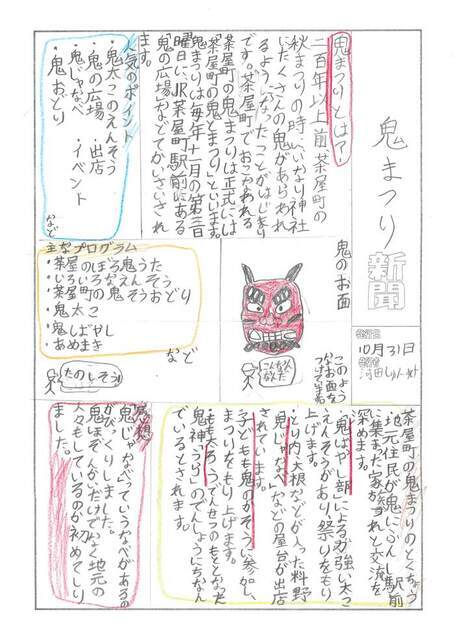 鬼まつり新聞
発行日
10月31日
発行者
鬼まつりとは?
二百年以上前茶屋町の
秋まつりの時にいなり神社
にたくさんの鬼があらわれ
るようになったことがはじまり
です。茶屋町でおこなわれる
茶屋町の鬼まつりは正式には
「茶屋町の鬼まつり」といいます。
鬼まつりは毎年十一月の第三日
曜日に、JR茶屋町駅前にある
「鬼の広場」などでかいさいされ
ます。
人気のポイント
・鬼太このえんそう
・鬼の広場 ・出店
・鬼じゃなべ ・イベント
・鬼おどり
など
鬼のお面
このよう
なお面を
こんなん
なんだ
主なプログラム
・茶屋のぼろ鬼うた
・いろいろなえんそう
・茶屋町の鬼そうおどり
・鬼太こ
・鬼しばやし
・あめまき
など
たのしそう!
茶屋町の鬼まつりのとくちょう
・地元住民が鬼にふんし、駅前
に集まった家知すれと交流を
深めます。
・「鬼ばやし部」による力強い太こ
えんそうがあり、祭りをもり
上げます。
・とり肉、大根などが入った料野
「鬼じゃなべ」などの屋台が出店
されています。
・子どもも鬼のかそうに参加し、
まつりをもり上げます。
・もも太ろうでんせつのもととなった
鬼神「うら」のでんしょうにちなん
でいるとされます。
感想
鬼じゃなべっていうなべがあるの
がびっくりしました。
鬼ほぞんかいだけでなく地元の
人々もしているのが初めてしり
ました。